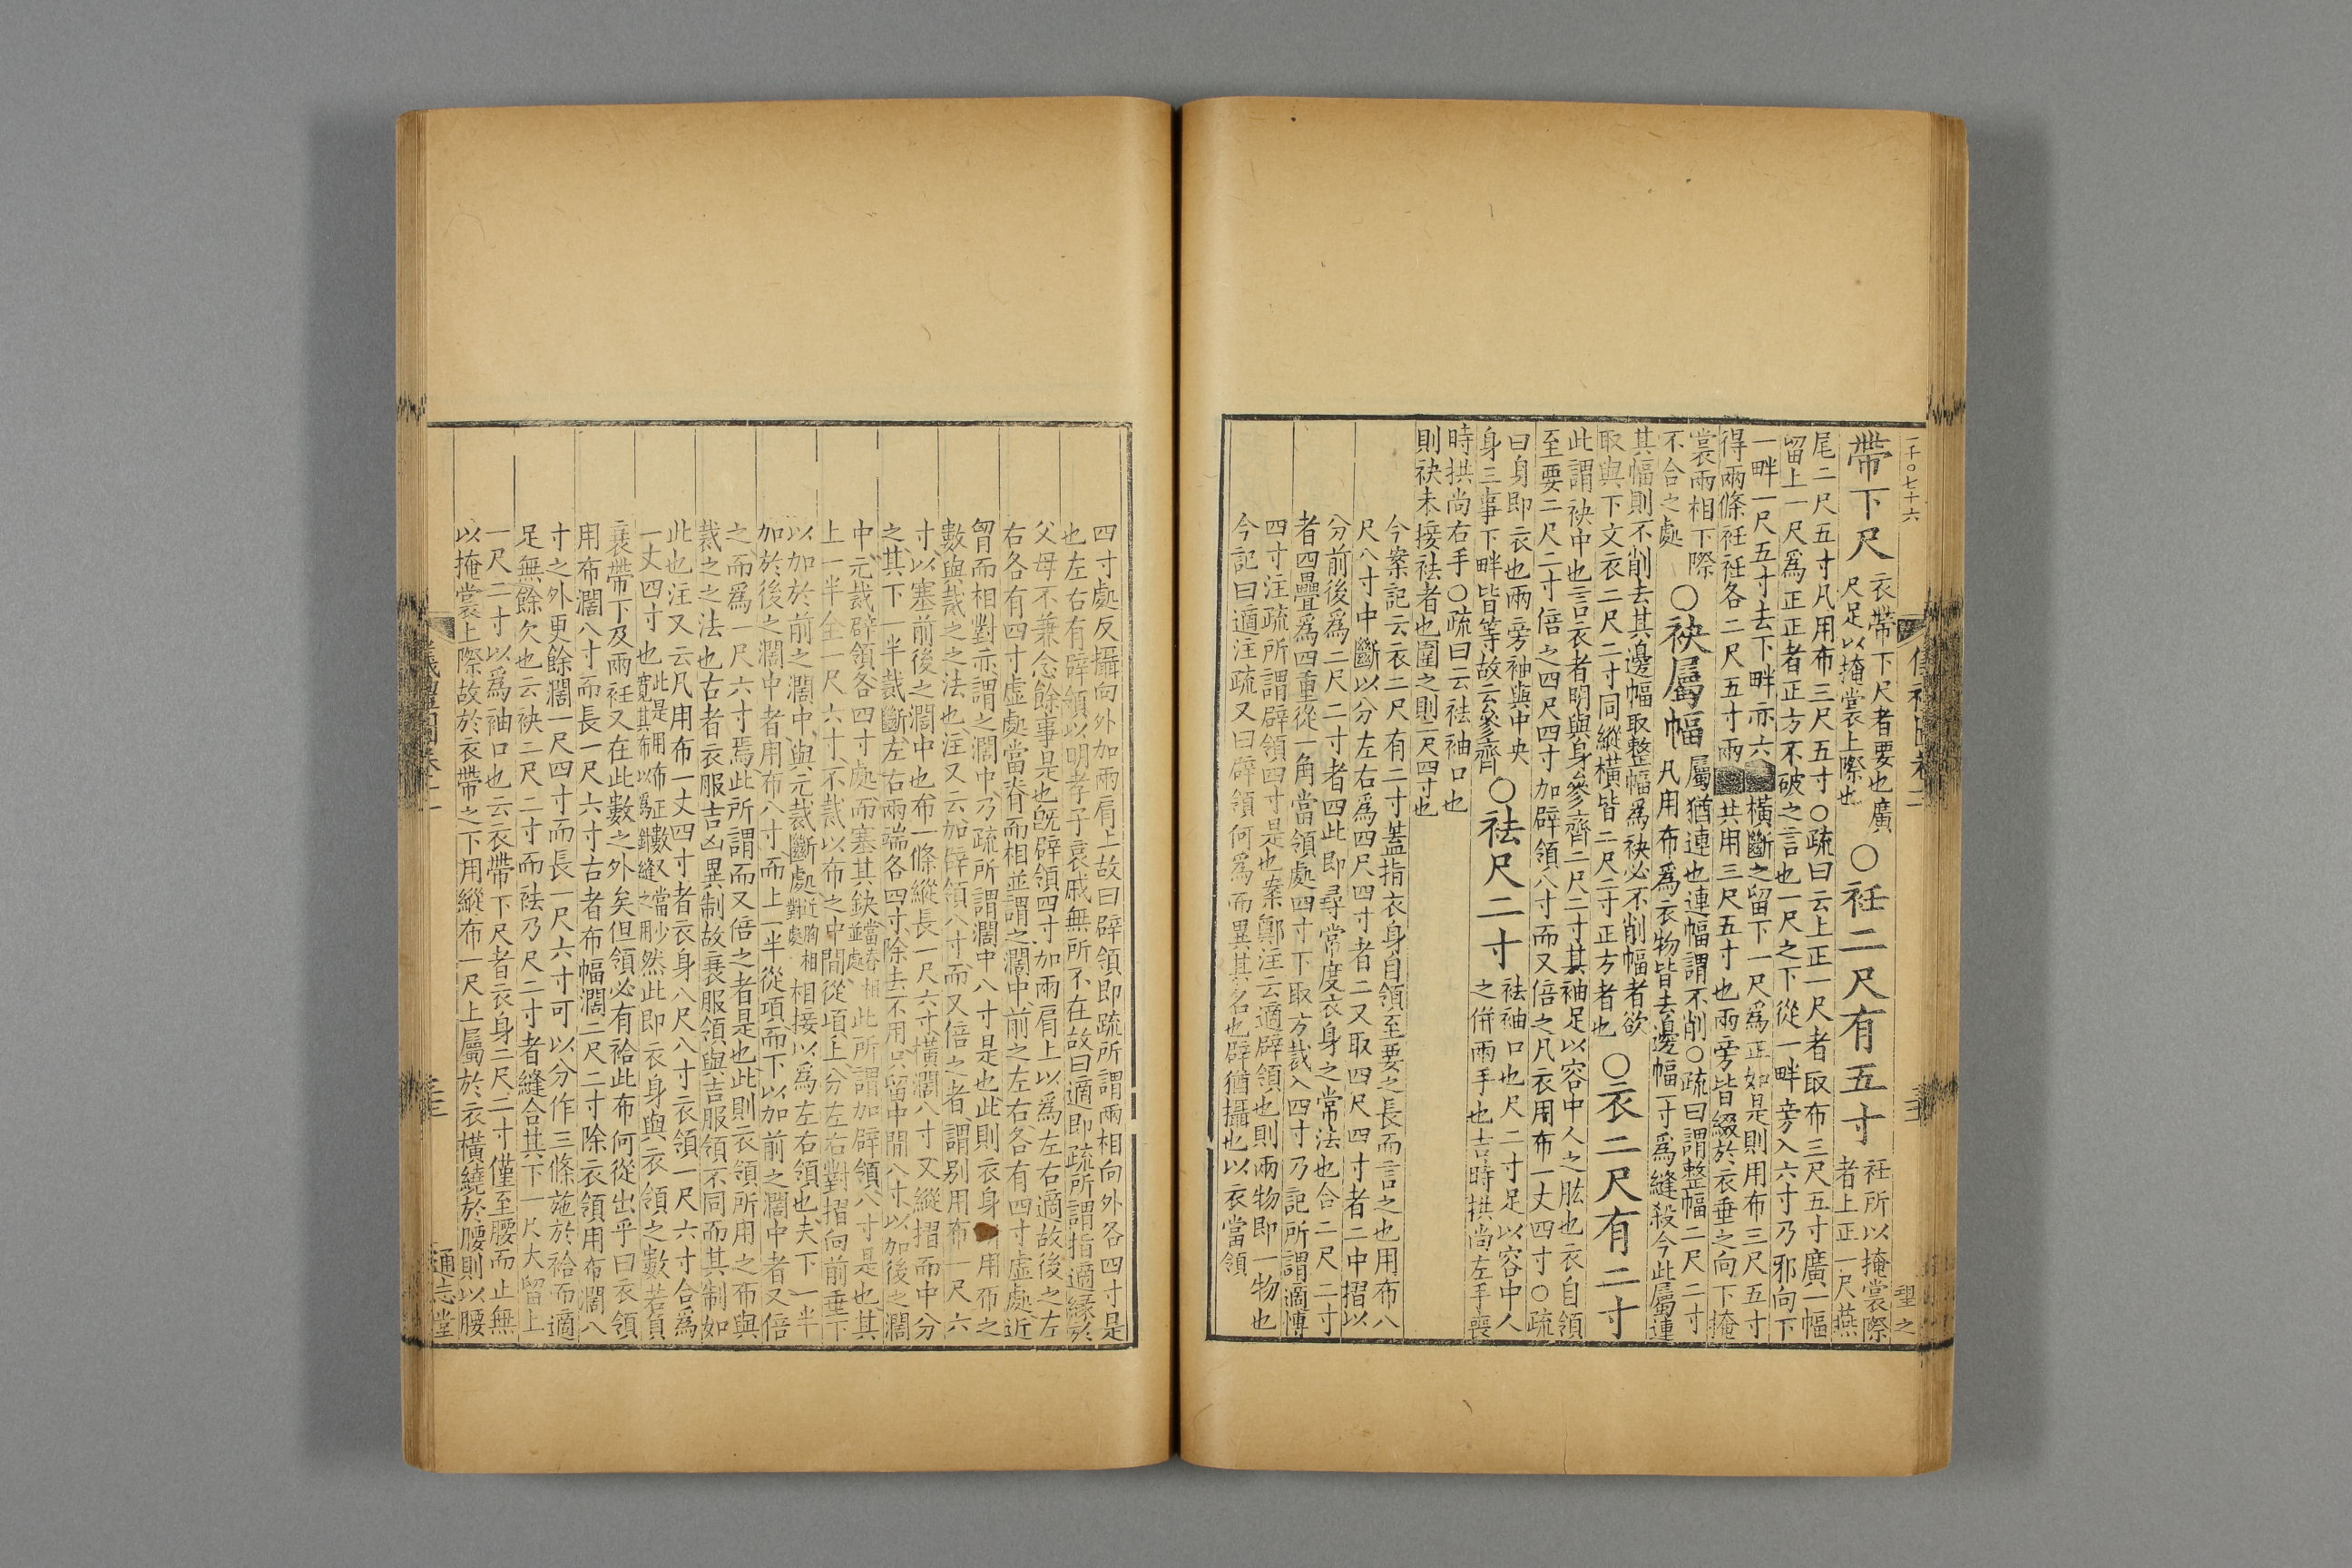 一千〇七十六
理之
帶下尺
衣帶下尺者要也廣
尺足以掩裳上際也
〇衽二尺有五寸
衽所以掩裳際
者上正一尺燕
尾二尺五寸凡用布三尺五寸〇疏曰云上正一尺者取布三尺五寸廣一幅
留上一尺爲正正者正方不破之言也一尺之下從一畔旁入六寸乃邪向下
一畔一尺五寸去下畔亦六橫斷之留下一尺爲正如是則用布三尺五寸
得兩條衽衽各二尺五寸兩共用三尺五寸也兩旁皆綴於衣垂之向下掩
裳兩相下際
不合之處
〇袂屬幅
屬猶連也連幅謂不削〇疏曰謂整幅二尺二寸
凡用布爲衣物皆去邊幅一寸爲縫殺今此屬連
其幅則不削去其邊幅取整幅爲袂必不削幅者欲
取與下文衣二尺二寸同縱橫皆二尺二寸正方者也
〇衣二尺有二寸
此謂袂中也言衣者明與身參齊二尺二寸其袖足以容中人之肱也衣自領
至要二尺二寸倍之四尺四寸加辟領八寸而又倍之凡衣用布一丈四寸〇疏
曰身即衣也兩旁袖與中央
身三事下畔皆等故云參齊
〇袪尺二寸
袪袖口也尺二寸足以容中人
之併兩手也吉時拱尚左手喪
時拱尚右手〇疏曰云袪袖口也
則袂未接袪者也圍之則二尺四寸也
今案記云衣二尺有二寸蓋指衣身自領至要之長而言之也用布八
尺八寸中斷以分左右爲四尺四寸者二又取四尺四寸者二中摺以
分前後爲二尺二寸者四此即尋常度衣身之常法也合二尺二寸
者四疊爲四重從一角當領處四寸下取方裁入四寸乃記所謂適博
四寸注疏所謂辟領四寸是也案鄭注云適辟領也則兩物即一物也
今記曰適注疏又曰辟領何爲而異其名也辟猶攝也以衣當領
四寸處反攝向外加兩肩上故曰辟領即疏所謂兩相向外各四寸是
也左右有辟領以明孝子哀戚無所不在故曰適即疏所謂指適緣於
父母不兼念餘事是也既辟領四寸加兩肩上以爲左右適故後之左
右各有四寸虛處當脊而相並謂之濶中前之左右各有四寸虛處近
胷而相對亦謂之濶中乃疏所謂濶中八寸是也此則衣身所用布之
數與裁之之法也注又云加辟領八寸而又倍之者謂别用布一尺六
寸以塞前後之濶中也布一條縱長一尺六寸橫濶八寸又縱摺而中分
之其下一半裁斷左右兩端各四寸除去不用只留中間八寸以加後之濶
中元裁辟領各四寸處而塞其缺當脊相並處此所謂加辟領八寸是也其
上一半全一尺六寸不裁以布之中間從項上分左右對摺向前垂下
以加於前之濶中與元裁斷處近胸相對處相接以爲左右領也夫下一半
加於後之濶中者用布八寸而上一半從項而下以加前之濶中者又倍
之而爲一尺六寸焉此所謂而又倍之者是也此則衣領所用之布與
裁之之法也右者衣服吉凶異制故衰服領與吉服領不同而其制如
此也注又云凡用布一丈四寸者衣身八尺八寸衣領一尺六寸合爲
一丈四寸也此是用布正數又當少寬其布以爲針縫之用然此即衣身與衣領之數若負
衰帶下及兩衽又在此數之外矣但領必有袷此布何從出乎曰衣領
用布濶八寸而長一尺六寸古者布幅濶二尺二寸除衣領用布濶八
寸之外更餘濶一尺四寸而長一尺六寸可以分作三條施於袷而適
足無餘欠也云袂二尺二寸而袪乃尺二寸者縫合其下一尺大留上
一尺二寸以爲袖口也云衣帶下尺者衣身二尺二寸僅至腰而止無
以掩裳上際故於衣帶之下用縱布一尺上屬於衣橫繞於腰則以腰
通志堂